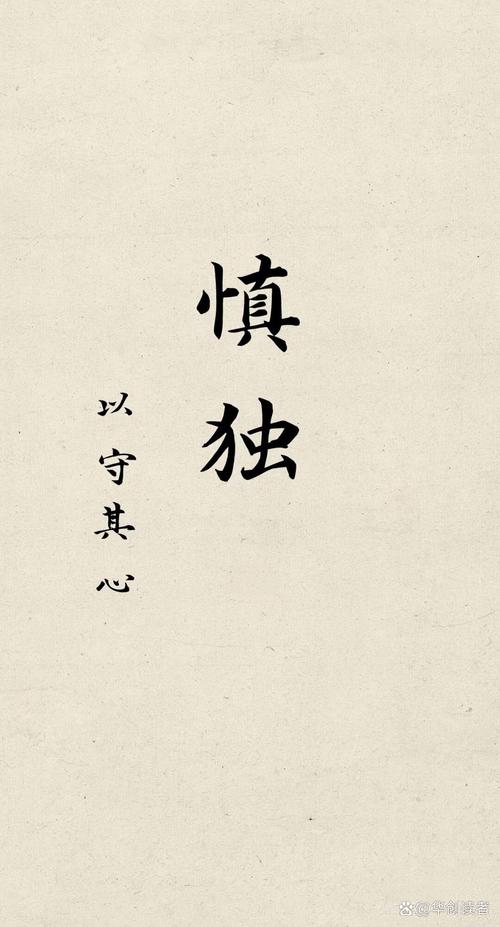 慎独
以守其心
华创读者